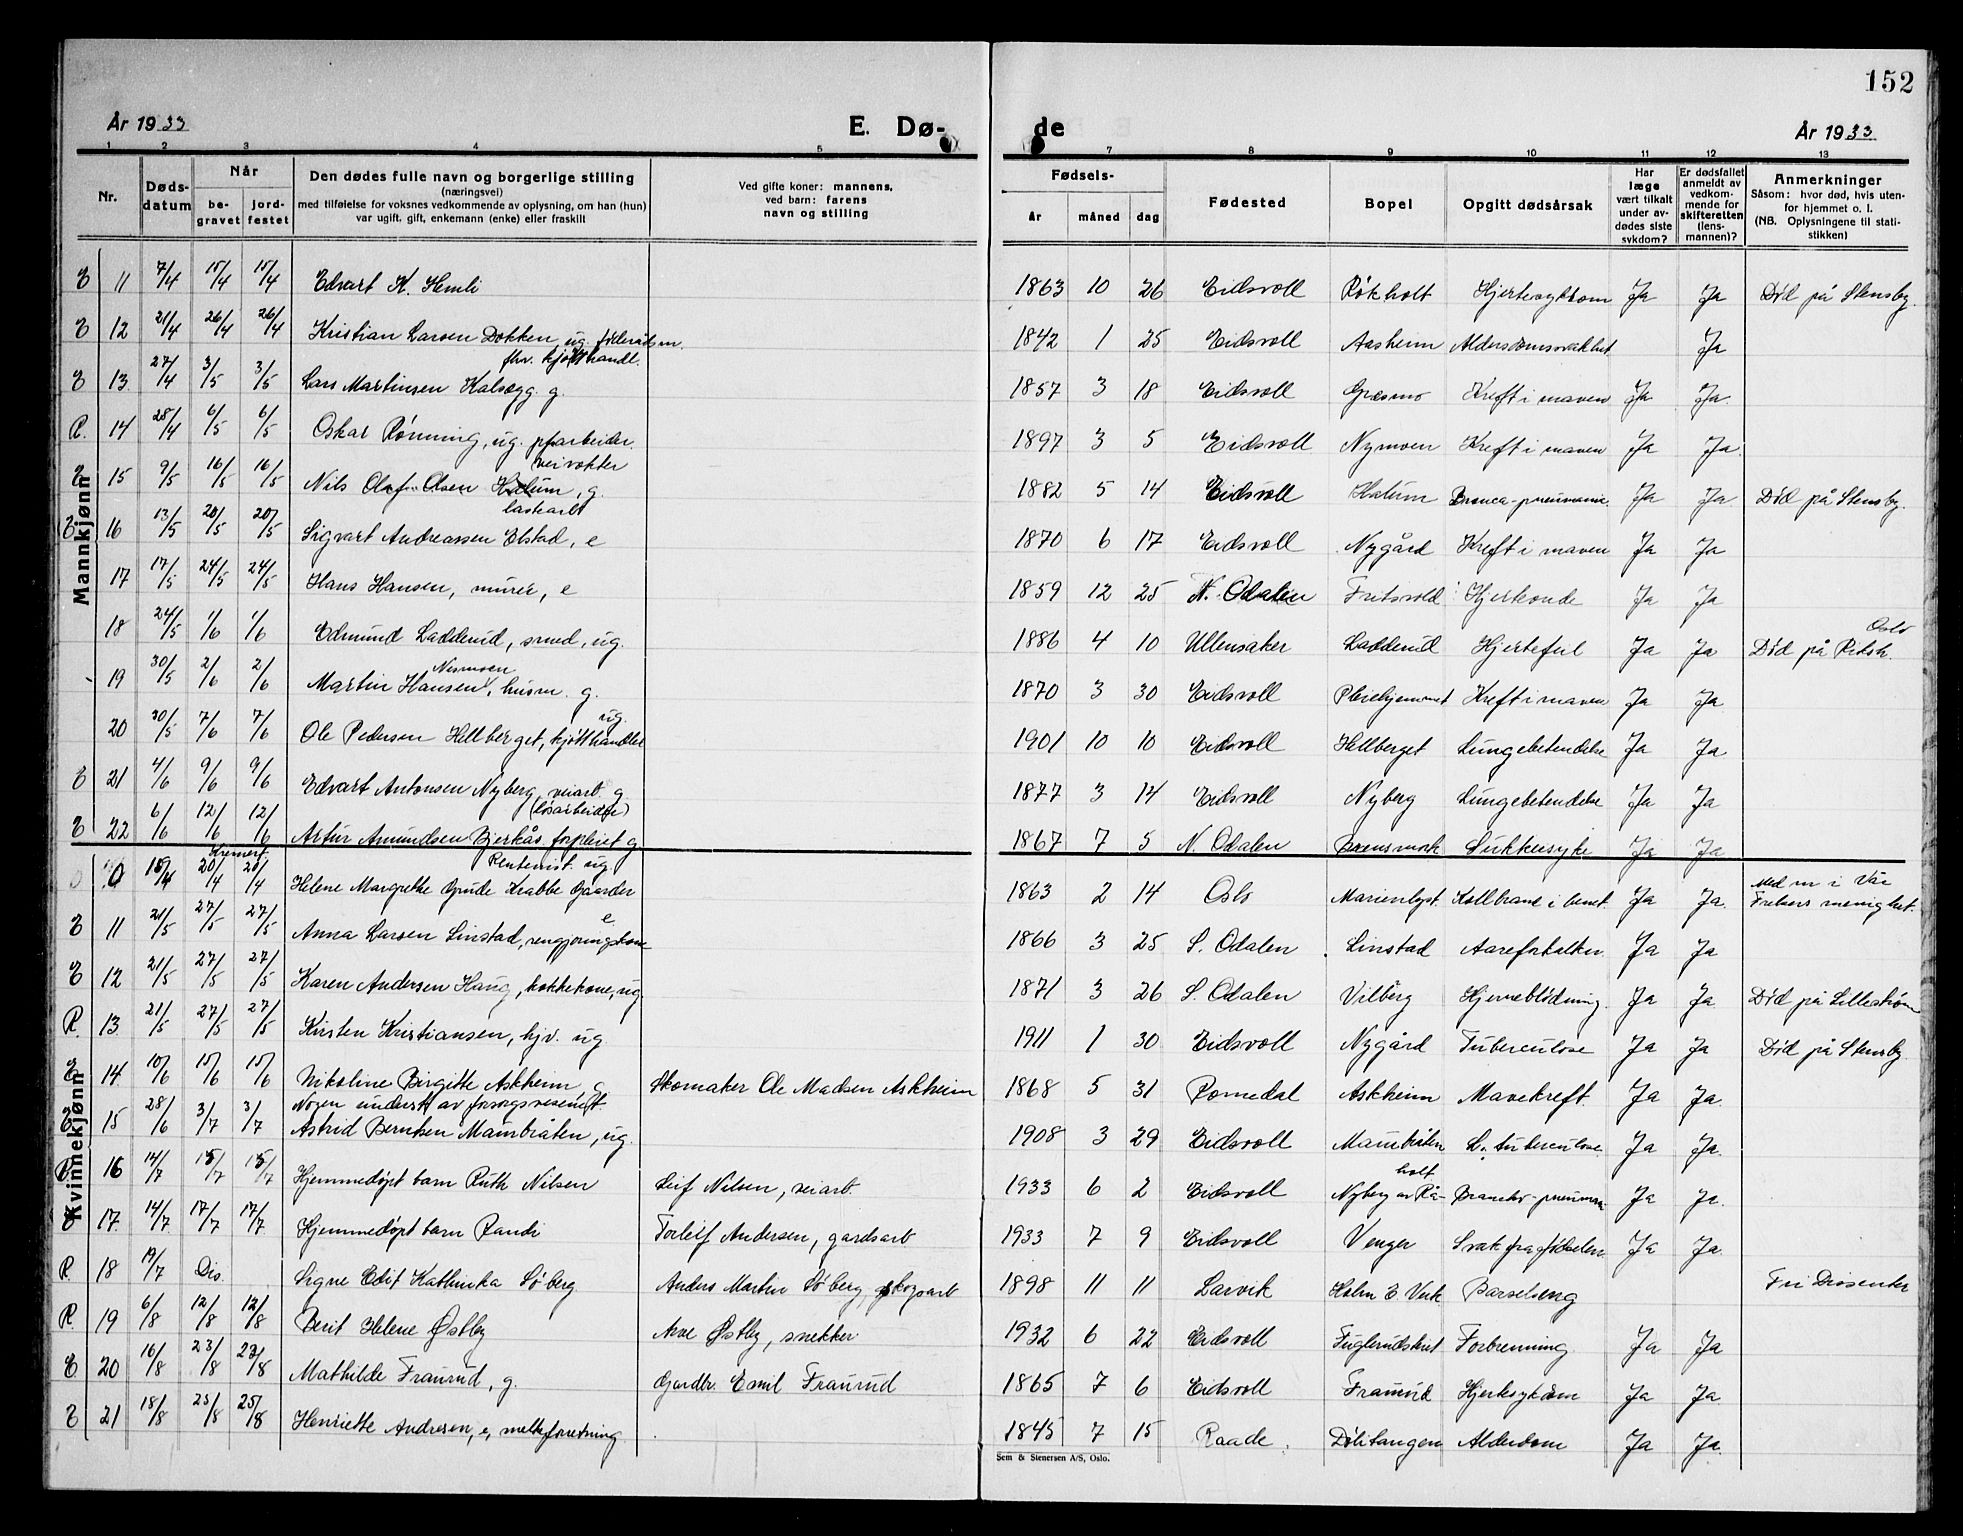 152
År 1933 E. Dø- de År 1933
1 2 3 4 5 7 8 9 10 11 12 13
Nr. Døds-datum Når be-gravet jord-festet Den dødes fulle navn og borgerlige stilling (næringsvei) med tilføielse for voksnes vedkommende av oplysning, om han (hun) var ugift, gift, enkemann (enke) eller fraskilt Ved gifte koner: mannens, ved barn: farens navn og stilling Fødsels- år måned dag Fødested Bopel Opgitt dødsårsak Har læge vært tilkalt under av-dødes siste sykdom? Er dødsfallet anmeldt av vedkom-mende for skifteretten (lens-mannen)? Anmerkninger Såsom: hvor død, hvis uten-for hjemmet o. l. (NB. Oplysningene til stati-stikken)
Mannkjønn
E 11 7/4 15/4 15/4 Edvart K. Hemli 1863 10 26 Eidsvoll Råkholt Hjertesykdom Ja Ja Død på Stensby.
E 12 21/4 26/4 26/4 Kristian Larsen Dokken, ug. føderådsm. 1842 1 25 Eidsvoll Aasheim Alderdomssvakhet Ja
fhv. kjøtthandl.
E 13 27/4 3/5 3/5 Lars Martinsen Kalsegg. g. 1857 3 18 Eidsvoll Græsmo Kreft i maven Ja Ja.
R. 14 28/4 6/5 6/5 Oskar Rønning, ug. arbeider. 1897 3 5 Eidsvoll Nymoen Kreft i maven Ja Ja.
veivokter
E 15 9/5 16/5 16/5 Nils Olaf Olsen Habum, g. 1882 5 14 Eidsvoll Habum Bronco-pneumonie. Ja Ja. Død på Stensby.
E 16 13/5 20/5 20/5 Sigvart Andreassen Elstad, e 1870 6 17 Eidsvoll Nygård Kreft i maven Ja Ja
17 17/5 24/5 24/5 Hans Hansen, murer, e 1859 12 25 N. Odalen Fritsvold Hjertonde Ja Ja
Oslo
18 24/5 1/6 1/6 Edmund Ladderud, smed, ug. 1886 4 10 Ullensaker Ladderud Hjertefeil Ja Ja Død på Riksh.
Nesmoen
19 30/5 2/6 2/6 Martin Hansen, husm. g. 1870 3 30 Eidsvoll Pleiehjemmet Kreft i maven Ja Ja.
ug.
20 30/5 7/6 7/6 Ole Pedersen Hellberget, kjøtthandler 1901 10 10 Eidsvoll Hellberget Lungebetendelse Ja Ja.
E 21 4/6 9/6 9/6 Edvart Antonsen Nyberg, veiarb. g 1877 3 14 Eidsvoll Nyberg Lungebetendelse Ja Ja
(løsarbeider)
E 22 6/6 12/6 12/6 Artur Amundsen Bjerkås forpleiet g 1867 7 5 N. Odalen Brensmork Sukkersyke Ja Ja
Kvinnekjønn
Kremert. Rentenist. ug Med m i Vår
10 15/4 20/4 20/4 Helene Margrethe Grude Krabbe Gaarder 1863 2 14 Oslo Marienlyst. Koldbrand i benet. Ja Ja. Frelsers menighet.
e
E 11 21/5 27/5 27/5 Anna Larsen Linstad, rengjøringskone 1866 3 25 S. Odalen Linstad Aareforkalkn Ja Ja
E 12 21/5 27/5 27/5 Karen Andersen Haug, kokkekone, ug. 1871 3 26 S. Odalen Vilberg Hjerneblødning. Ja Ja. Død på Lillestrøm
R. 13 21/5 27/5 27/5 Kirsten Kristiansen, hjv. ug 1911 1 30 Eidsvoll Nygård Tuberculose Ja Ja Død på Stensby.
E 14 10/6 15/6 15/6 Nikoline Birgitte Askheim g Skomaker Ole Madsen Askheim 1868 5 31 Romedal Askheim Mavekreft. Ja Ja.
Nogen underst av forsorgsvesenet.
E 15 28/6 3/7 3/7 Astrid Berntsen Maurbråten, ug. 1908 3 29 Eidsvoll Maurbråten L. tuberculose Ja Ja.
holt
R. 16 14/7 15/7 15/7 Hjemmedøpt barn Ruth Nilsen Leif Nilsen, veiarb. 1933 6 2 Eidsvoll Nyberg av Rå- Broncho-pneumoni Ja Ja.
E 17. 14/7 17/7 17/7 Hjemmedøpt barn Randi Torleif Andersen, gardsarb 1933 7 9 Eidsvoll Venger Svak fra fødselen Ja Ja.
R. 18 19/7 Dis. Signe Edit Kathinka Søberg Anders Martin Søberg, skogsarb 1898 11 11 Larvik Holm E. Verk Barselseng Fri Dissenter
R. 19 6/8 12/8 12/8 Berit Helene Østby Arve Østby, snekker 1932 6 22 Eidsvoll Fuglerudshut Forbrenning Ja Ja
E 20 16/8 23/8 23/8 Mathilde Fraurud, g. Gardbr. Emil Fraurud 1865 7 6 Eidsvoll Fraurud Hjertesykdom Ja Ja
E 21 18/8 25/8 25/8 Henriette Andresen, e, melkeforretning 1845 7 15 Raade Dølitangen Alderdom Ja Ja.
Sem & Stenersen A/S, Oslo.